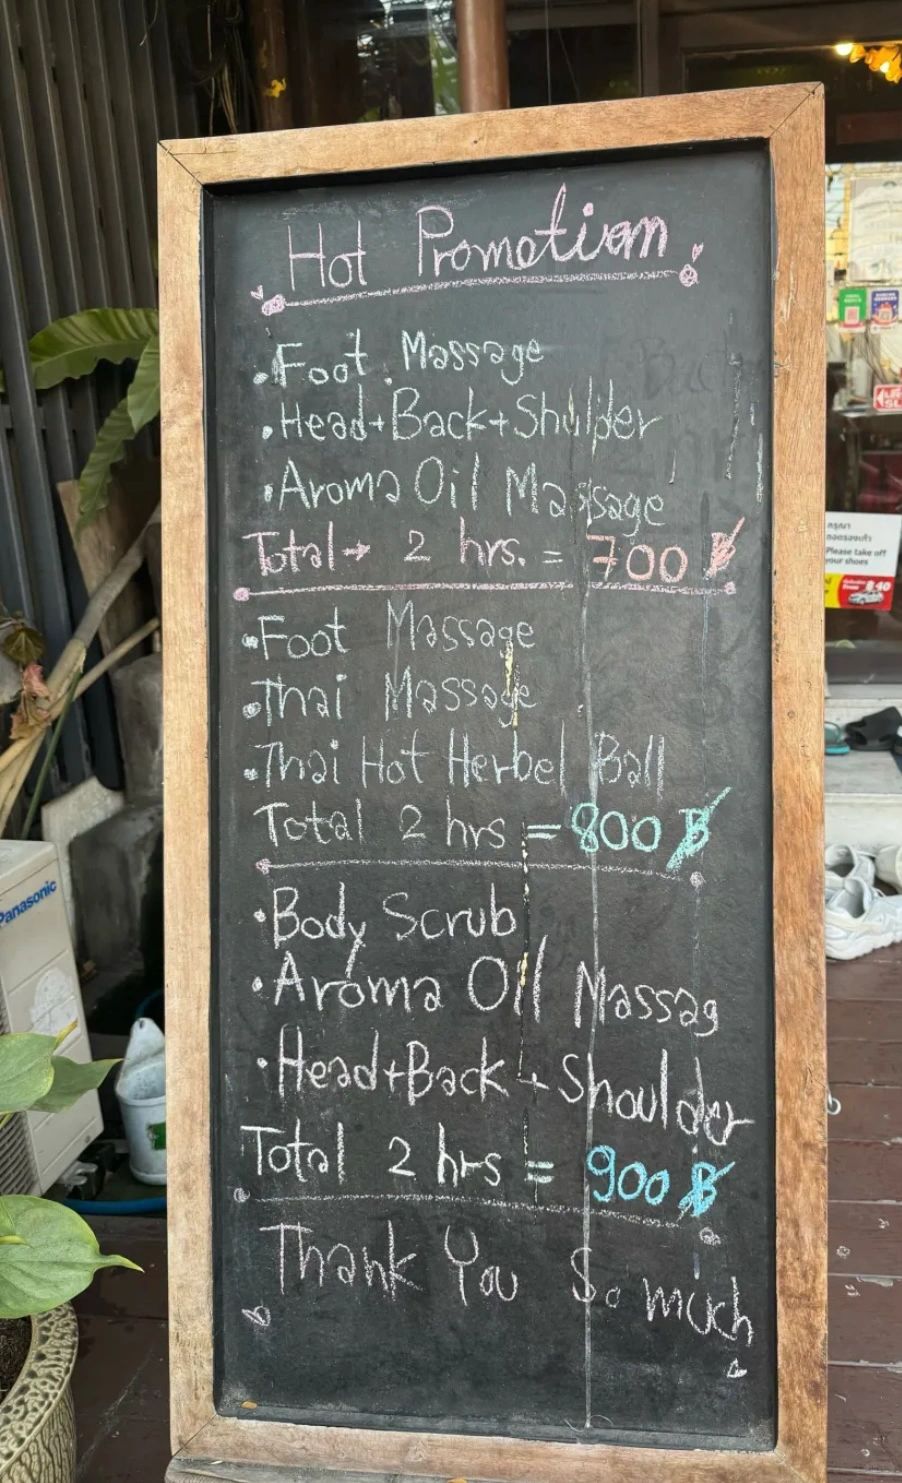 Hot Promotion
• Foot Massage
• Head+Back+Shulder
• Aroma Oil Massage
Total → 2 hrs. = 700 ฿
• Foot Massage
• Thai Massage
• Thai Hot Herbel Ball
Total 2 hrs = 800 ฿
• Body Scrub
• Aroma Oil Massag
• Head+Back + Shoulder
Total 2 hrs = 900 ฿
Thank You So much
Panasonic
กรุณา
ถอดรองเท้า
Please take off
your shoes